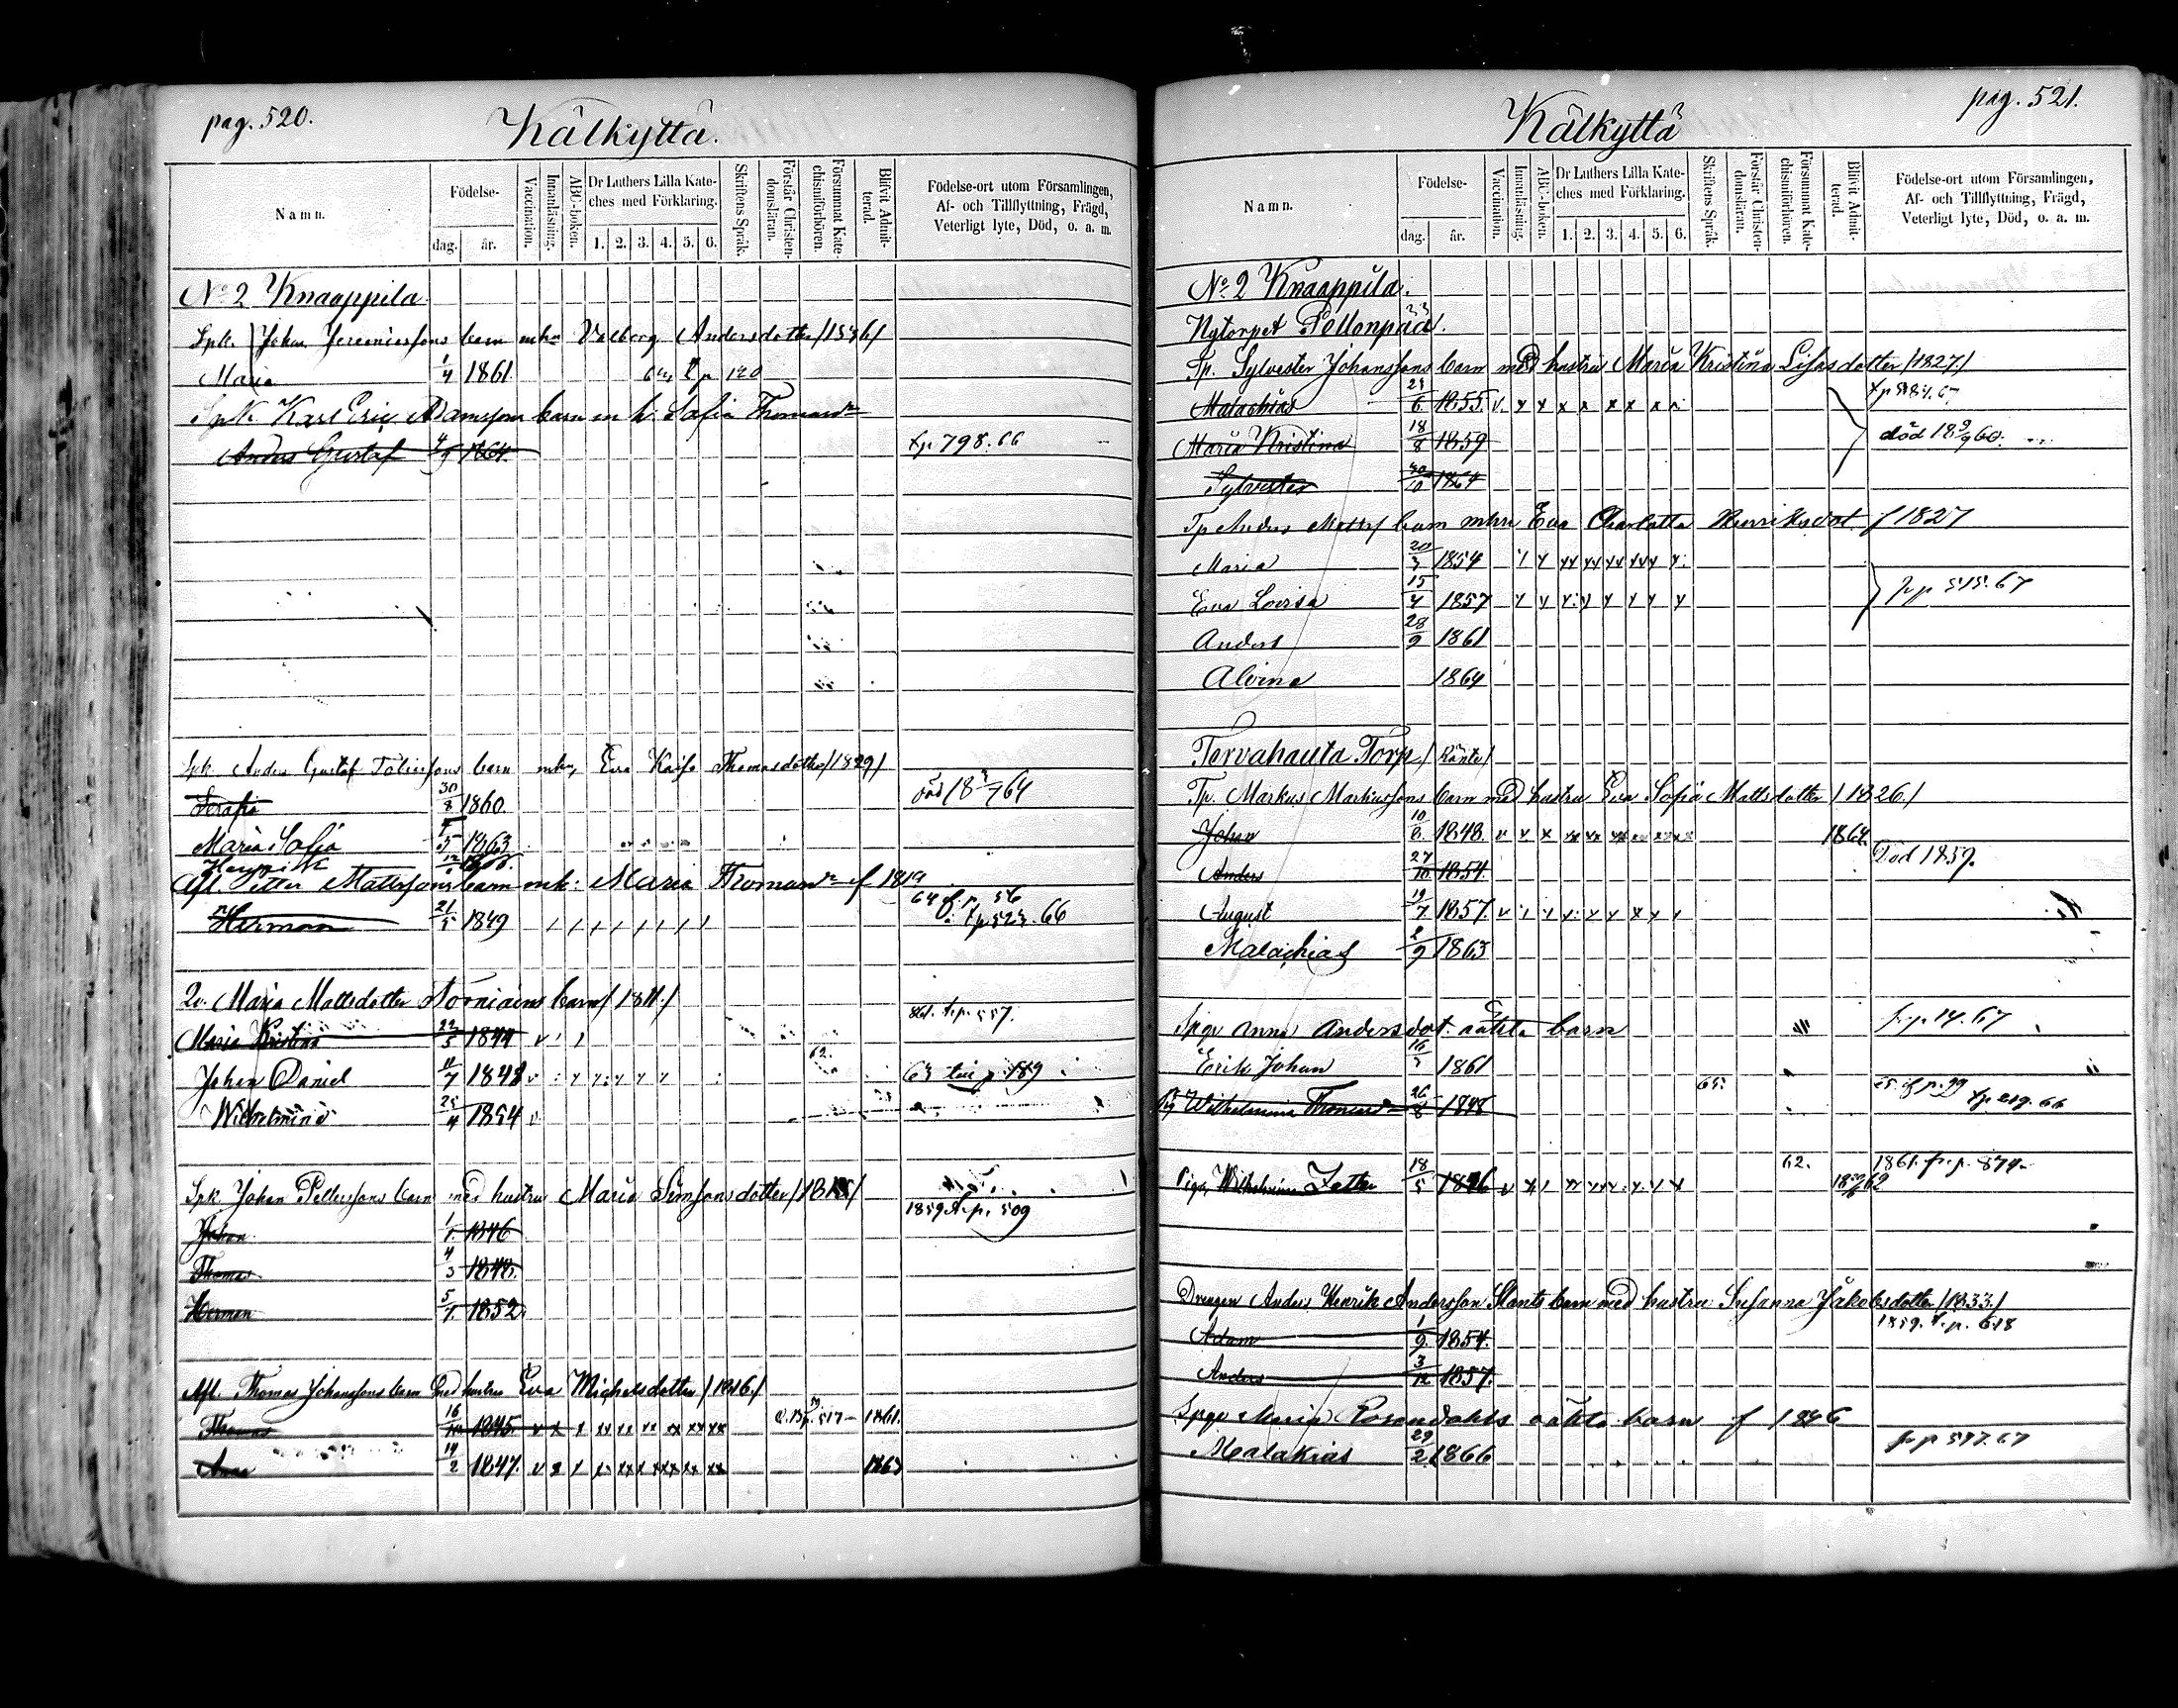 pag. 520.
Kälkyttä.
Namn.
Födelse-
dag.
år.
Vaccination.
Innanläsning.
ABC-boken.
Dr Luthers Lilla Kate-
ches med Förklaring.
1. 2. 3. 4. 5. 6.
Skriftens Språk.
Förstår Christen-
domsläran.
Försummat Kate-
chismiförhören.
Blifvit Admit-
terad.
Födelse-ort utom Församlingen,
Af- och Tillflyttning, Frägd,
Veterligt lyte, Död, o. a. m.
No 2 Knaappila
Spk. Johan Jeremiassons barn mhu Valborg Andersdotter /1836/
Maria 1/4 1861
Spk. Karl Eric Adamsson barn m h. Sofia Thomasdr
Anders Gustaf 4/9 1864 tp 798.66
Spk. Anders Gustaf Tobiassons barn mhu, Eva Kaisa Thomasdotter /1829/
Serafia 30/8 1860. död 18 /7 64
Maria Sofia 5 1863
Henrik 12
Afl. Petter Mattssons barn mh: Maria Thomasdr f 1819
64 f. p. 56
Herman 21/5 1849 tp 523.66
Maria Mattsdotter Torniains barn / 1811/
861. t.p. 557.
Maria Kristina 22/5 1844
62.
Johan Daniel 11/7 1848 63 p 189
Wilhelmina 25/4 1854
Spk Johan Pettersons barn med hustru Maria Simsonsdotter
1859 t.p. 509
Johan 1/1. 1846
Thomas 4/3 1848.
Herman 5/1. 1852
Afl. Thomas Johanssons barn med hustru Eva Michelsdotter / 1816./
Thomas 16 1845. p. 517 1861.
Anna 14/2 1847. 1863
pag. 521.
Kälkyttä
Namn.
Födelse-
dag.
år.
Vaccination.
Innanläsning.
ABC-boken.
Dr Luthers Lilla Kate-
ches med Förklaring.
1. 2. 3. 4. 5. 6.
Skriftens Språk.
Förstår Christen-
domsläran.
Försummat Kate-
chismiförhören.
Blifvit Admit-
terad.
Födelse-ort utom Församlingen,
Af- och Tillflyttning, Frägd,
Veterligt lyte, Död, o. a. m.
No 2 Knaappila.
Nytorpet Pellonpää.
Tp. Sylvester Johanssons barn med hustru Maria Kristina Lisasdotter /1827/
Malachias 6 1855.
Maria Kristina 18/8 1859 död 18 9/9 60.
Sylvester 10 1864
Tp Anders Mattss barn mhu Eva Charlotta Henriksdot. f 1827
Maria 20/3 1854
Eva Lovisa 15/4 1857 p 515.67
Anders 28/9 1861
Alvina 1864
Tervahauta Torp / Ränte/
Tp. Markus Markussons barn med hustru Eva Sofia Mattsdotter / 1826./
Johan 10 1848. 1864.
Anders 27/10 1854 Död 1859.
August 19/7 1857.
Malachias 2/9 1863
Spge Anna Andersdot. oäkta barn p. 14.67
Erik Johan 16 1861
65.
Pig Wilhelmina Thomasdr 26/8 1848 p. 99 tp 219.66
62. 1861. fr. p. 874.
Piga, Wilhelmina Zetter 18/5 1846 62
Drengen Anders Henrik Andersson Slants barn med hustru Susanna Jakobsdotter /1833/
1859. t.p. 618
Adam 1/9 1854.
Anders 3/12 1857.
Spge Maria Rosendahls oäkta barn f 1846
Malakias 29/2 1866 p 597.67